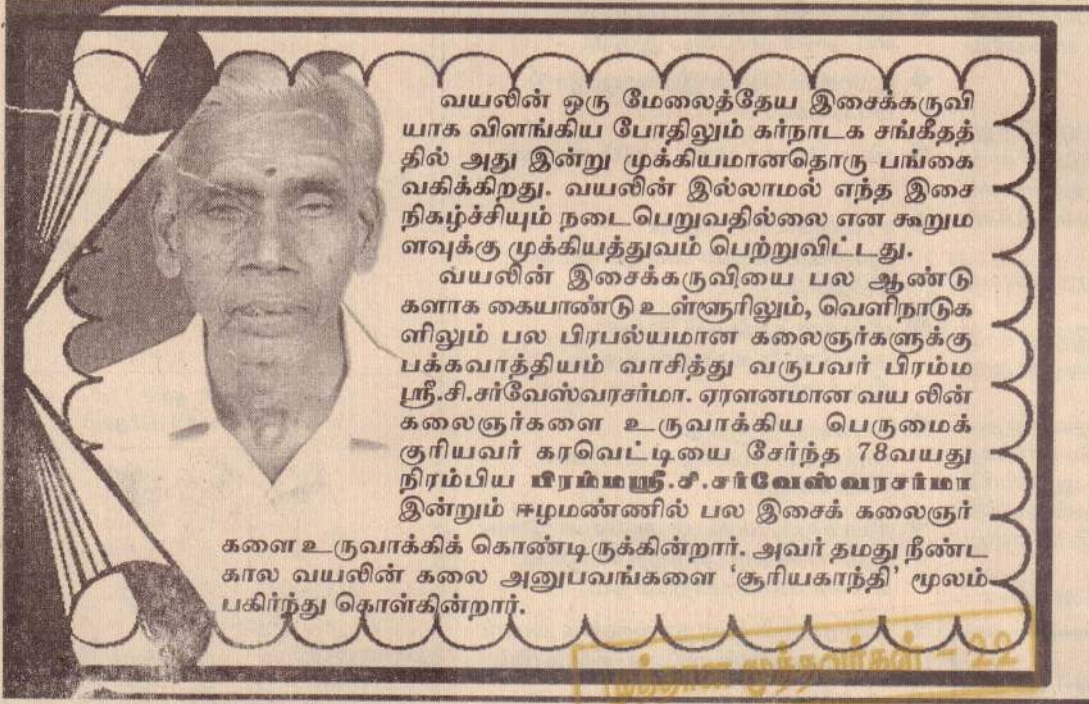 வயலின் ஒரு மேலைத்தேய இசைக்கருவி
யாக விளங்கிய போதிலும் கர்நாடக சங்கீதத்
தில் அது இன்று முக்கியமானதொரு பங்கை
வகிக்கிறது. வயலின் இல்லாமல் எந்த இசை
நிகழ்ச்சியும் நடைபெறுவதில்லை என கூறும
ளவுக்கு முக்கியத்துவம் பெற்றுவிட்டது.
வயலின் இசைக்கருவியை பல ஆண்டு
களாக கையாண்டு உள்ளூரிலும், வெளிநாடுக
ளிலும் பல பிரபல்யமான கலைஞர்களுக்கு
பக்கவாத்தியம் வாசித்து வருபவர் பிரம்ம
ஸ்ரீ.சி.சர்வேஸ்வரசர்மா. ஏராளனமான வய லின்
கலைஞர்களை உருவாக்கிய பெருமைக்
குரியவர் கரவெட்டியை சேர்ந்த 78வயது
நிரம்பிய பிரம்மஸ்ரீ.சி.சர்வேஸ்வரசர்மா
இன்றும் ஈழமண்ணில் பல இசைக் கலைஞர்
களை உருவாக்கிக் கொண்டிருக்கின்றார். அவர் தமது நீண்ட
கால வயலின் கலை அனுபவங்களை ‘சூரியகாந்தி’ மூலம்
பகிர்ந்து கொள்கின்றார்.
முத்தான மூத்தவர்கள் - 22